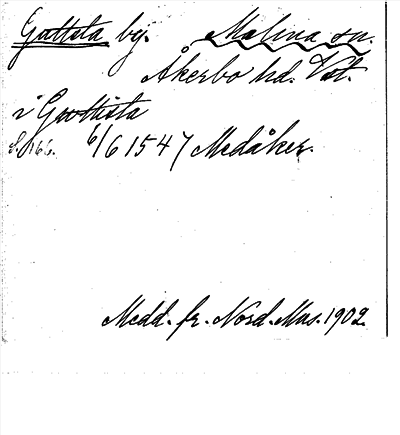 Guttsta by. Malma sn.
Åkerbo hd. Vst.
i Guttista
S. 166. 6/6 1547 Medåker.
Medd. fr. Nord. Mus. 1902.